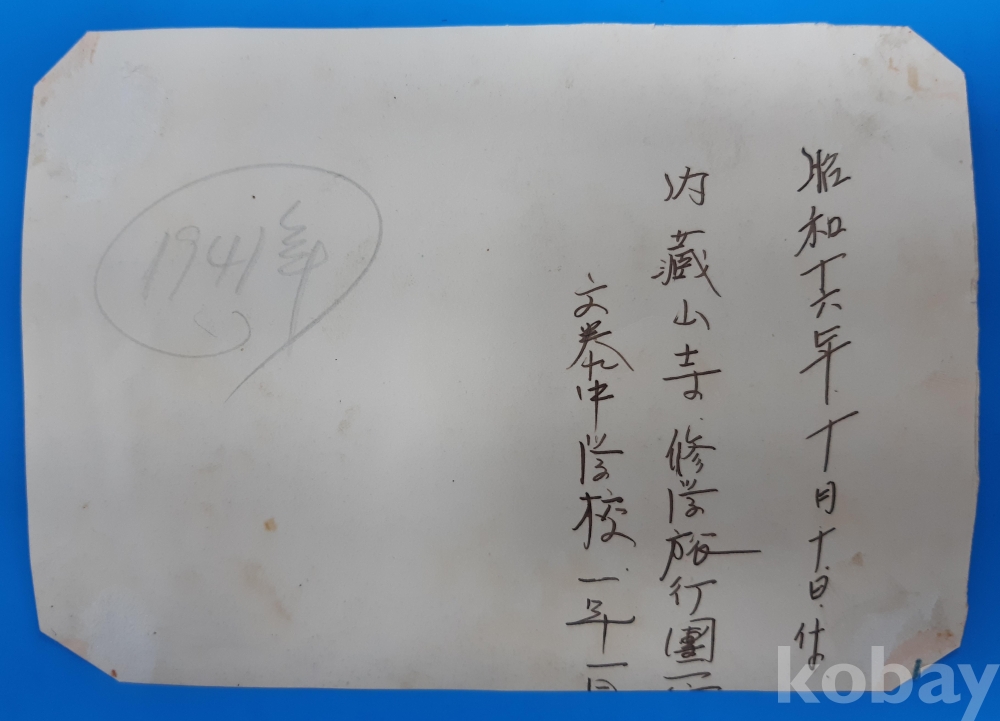 昭和十六年十月十日.
内藏山寺.修学旅行團
文中学校 一年一
1941年
kobay